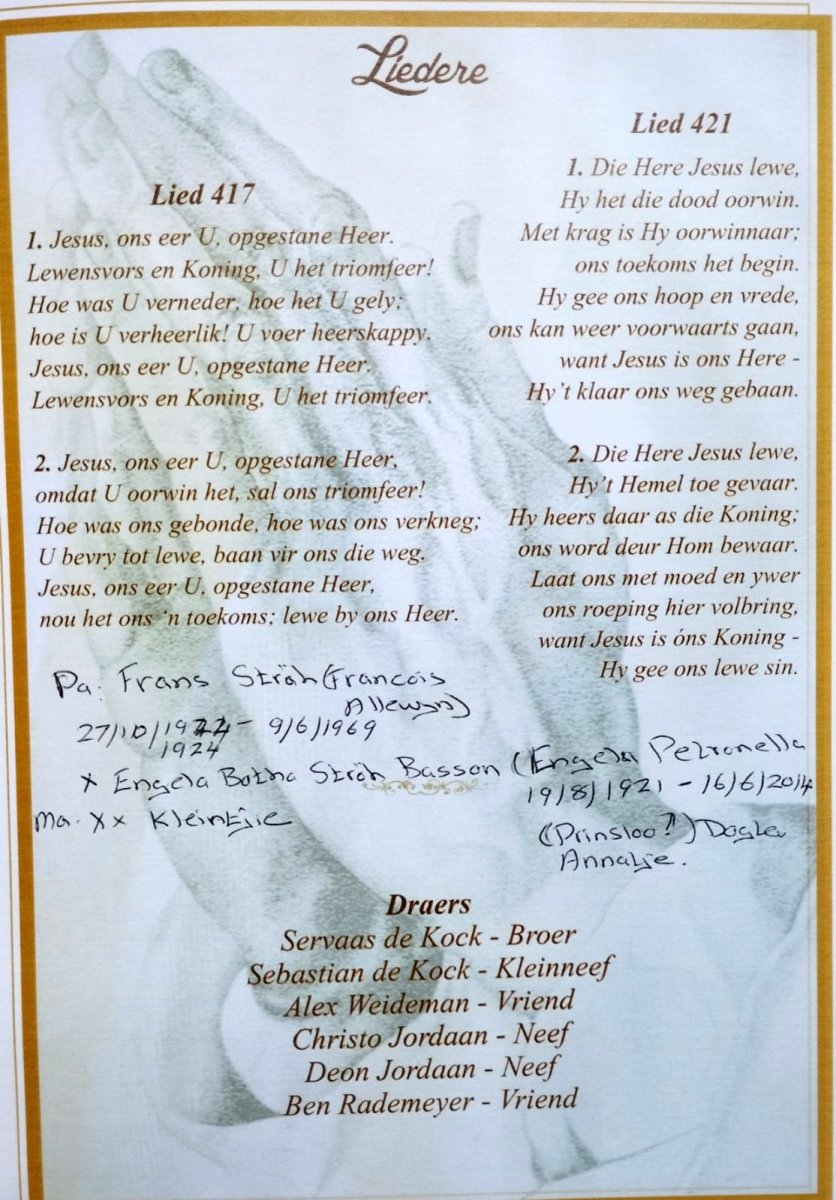 Liedere
Lied 417
1. Jesus, ons eer U, opgestane Heer.
Lewensvors en Koning, U het triomfeer!
Hoe was U verneder, hoe het U gely;
hoe is U verheerlik! U voer heerskappy.
Jesus, ons eer U, opgestane Heer.
Lewensvors en Koning, U het triomfeer.
2. Jesus, ons eer U, opgestane Heer,
omdat U oorwin het, sal ons triomfeer!
Hoe was ons gebonde, hoe was ons verkneg;
U bevry tot lewe, baan vir ons die weg.
Jesus, ons eer U, opgestane Heer,
nou het ons ‘n toekoms; lewe by ons Heer.
Lied 421
1. Die Here Jesus lewe,
Hy het die dood oorwin.
Met krag is Hy oorwinnaar;
ons toekoms het begin.
Hy gee ons hoop en vrede,
ons kan weer voorwaarts gaan,
want Jesus is ons Here -
Hy’t klaar ons weg gebaan.
2. Die Here Jesus lewe,
Hy’t Hemel toe gevaar.
Hy heers daar as die Koning;
ons word deur Hom bewaar.
Laat ons met moed en ywer
ons roeping hier volbring,
want Jesus is óns Koning -
Hy gee ons lewe sin.
Pa: Frans Ströh (Francois
Allewyn)
27/10/1924 - 9/6/1969
1924
x Engela Botha Ströh Basson (Engela Petronella
19/8/1921 - 16/6/2014
Ma - xx Kleintjie
(Prinsloo?) Dogter
Annatjie.
Draers
Servaas de Kock - Broer
Sebastian de Kock - Kleinneef
Alex Weideman - Vriend
Christo Jordaan - Neef
Deon Jordaan - Neef
Ben Rademeyer - Vriend